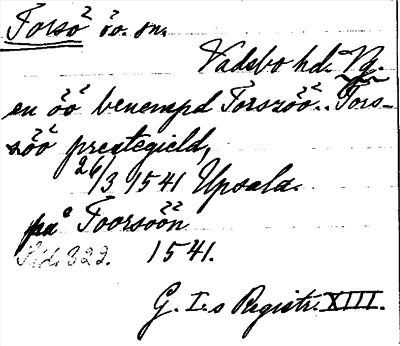 Torsö ö o. sn.
Vadsbo hd. Vg.
en öö benempd Torszöö.. Tors-
zöö prestegield,
26/3 1541 Upsala.
på Toorsöön
Sid. 322. 1541.
G. I:s Registr. XIII.